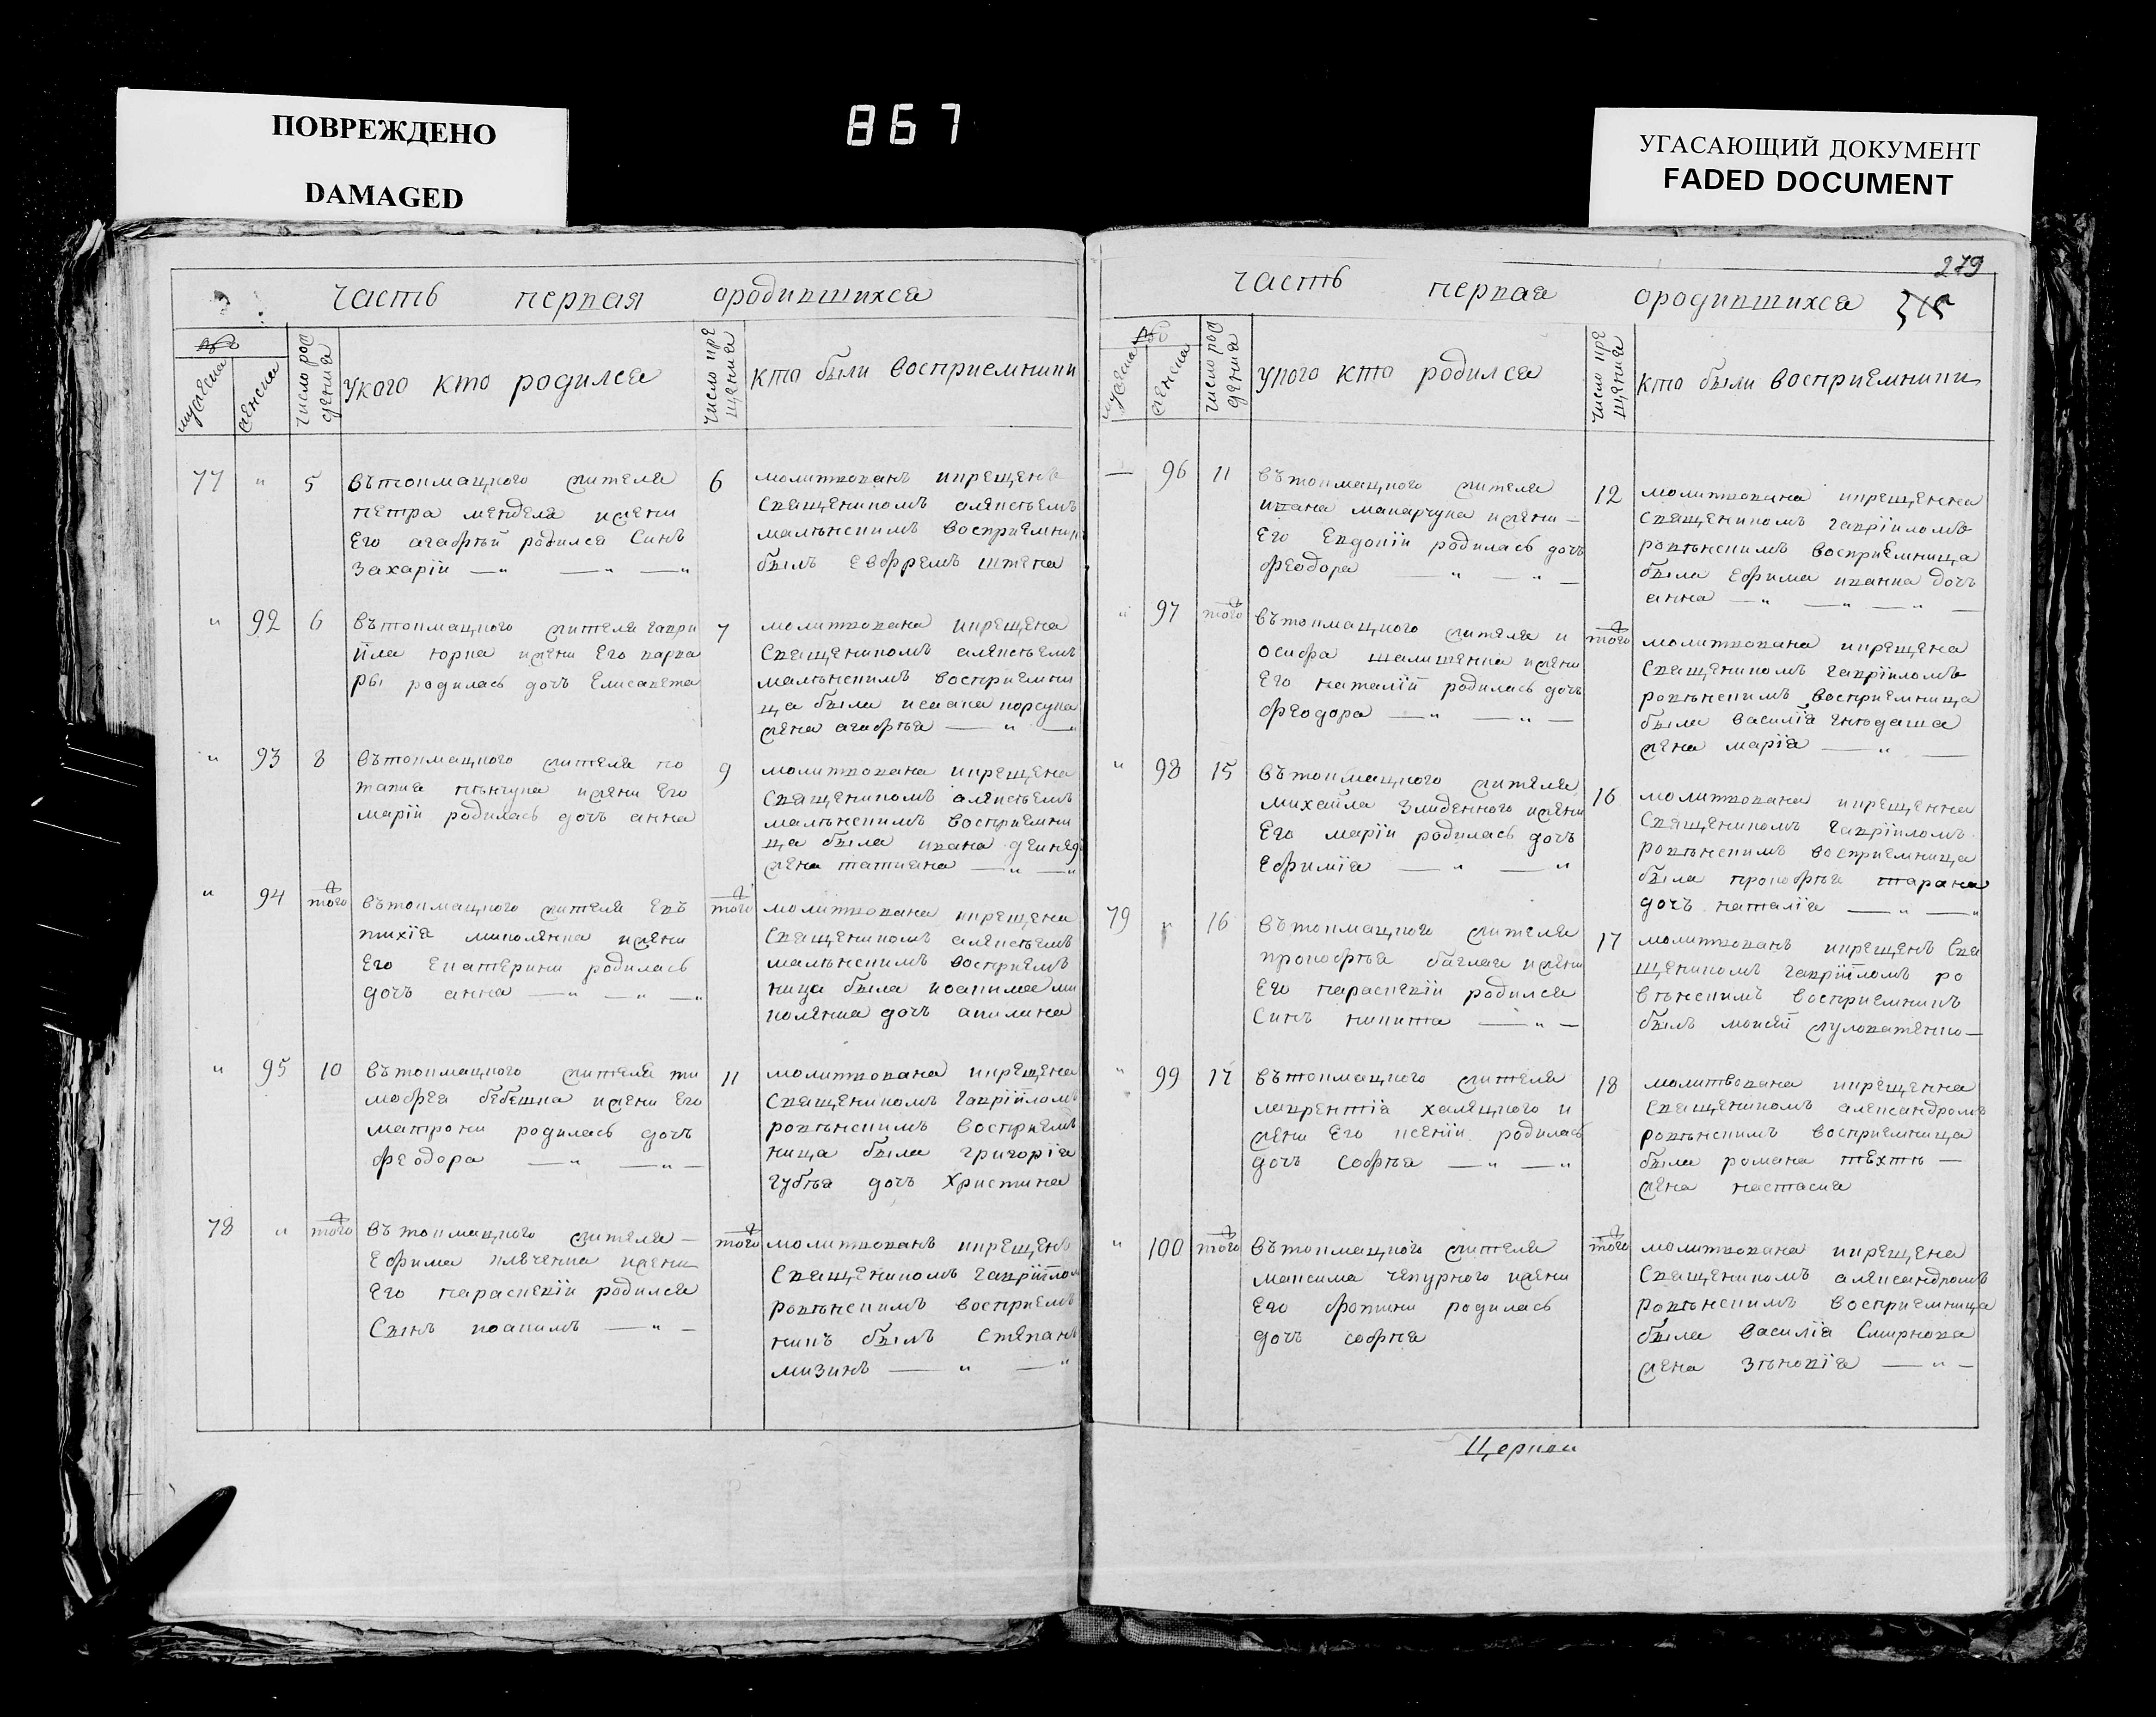 ПОВРЕЖДЕНО
DAMAGED
867
УГАСАЮЩИЙ ДОКУМЕНТ
FADED DOCUMENT
часть первая ородившихся
число рождения
мужеска
женска
укого кто родился
число крещения
кто были восприемники
77 " 5
вътокмацкого жителя
петра менделя ижени
Его агафїи родился Синъ
Захарїи — " — " — "
6
молитвованъ икрещенъ
Священикомъ алексѣемъ
былъ Евфремъ
" 92 6
вътокмацкого жителя гаври
йла юрка ижени Его варва
ры родилась дочъ Елисавета
7
молитвована икрещена
Священикомъ алексѣемъ
ца была исаака корсуна
жена агафѣя — " —
" 93 8
вътокмацкого жителя по
тапия ижени Его
марїи родилась дочъ анна
9
молитвована икрещена
Священикомъ алексѣемъ
ца была ивана
жена татиана — " — "
" 94 того
вътокмацкого жителя Ев
тихїя миколенка ижени
Его Екатерини родилась
дочъ анна — " — " — "
того
молитвована икрещена
Священикомъ алексѣемъ
ница была иоакима ми
коленка дочъ акилина
" 95 10
вътокмацкого жителя ти
мофея бебешка ижени Его
матрони родилась дочъ
феодора — " — " —
11
молитвована икрещена
Священикомъ гаврїиломъ
ровѣнскимъ восприем
ница была григорїя
губѣя дочъ Христина
78 " того
вътокмацкого жителя —
Ефима ижени
Его параскевїи родился
Сынъ иоакимъ — " —
того
молитвованъ икрещенъ
Священикомъ гаврїиломъ
ровѣнскимъ восприем
никъ былъ Стефанъ
мизинъ — " — "
279
часть первая ородившихся 315
мужеска
женска
число рождения
укого кто родился
число крещения
кто были восприемники
— 96 11
вътокмацкого жителя
ивана макарчука ижени —
Его Евдокїи родилась дочъ
феодора — " — " —
12
молитвована икрещенна
Священикомъ гаврїиломъ
ровѣнскимъ восприемница
была Ефима иванна дочъ
анна — " — " — " —
" 97 того
вътокмацкого жителя и
осифа шалишенка ижени
Его наталїи родилась дочъ
феодора — " — " —
того
молитвована икрещена
Священикомъ гаврїиломъ
ровѣнскимъ восприемница
была василїя гнѣдаша
жена марїя — " —
" 98 15
вътокмацкого жителя
михайла Злиденного ижени
Его марїи родилась дочъ
Ефимїя — " — "
16
молитвована икрещенна
Священикомъ гаврїиломъ
ровѣнскимъ восприемница
была прокофѣя тарана
дочъ наталїя — " — "
79 " 16
вътокмацкого жителя
прокофѣя баглая ижени
Его параскевїи родился
Синъ никита — " —
17
молитвованъ икрещенъ Свя
щеникомъ гаврїиломъ ро
вѣнскимъ восприемникъ
былъ моисей —
" 99 17
вътокмацкого жителя
лаврентїя халецкого и
жени Его ксенїи родилась
дочъ софѣя — " — "
18
молитвована икрещенна
Священикомъ александромъ
ровѣнскимъ восприемница
была романа —
жена настасия
" 100 того
вътокмацкого жителя
максима чепурного ижени
Его фотини родилась
дочъ софия
того
молитвована икрещена
Священикомъ александромъ
ровѣнскимъ восприемница
была василїя Смирнова
жена Зѣновїя — " —
Церкви